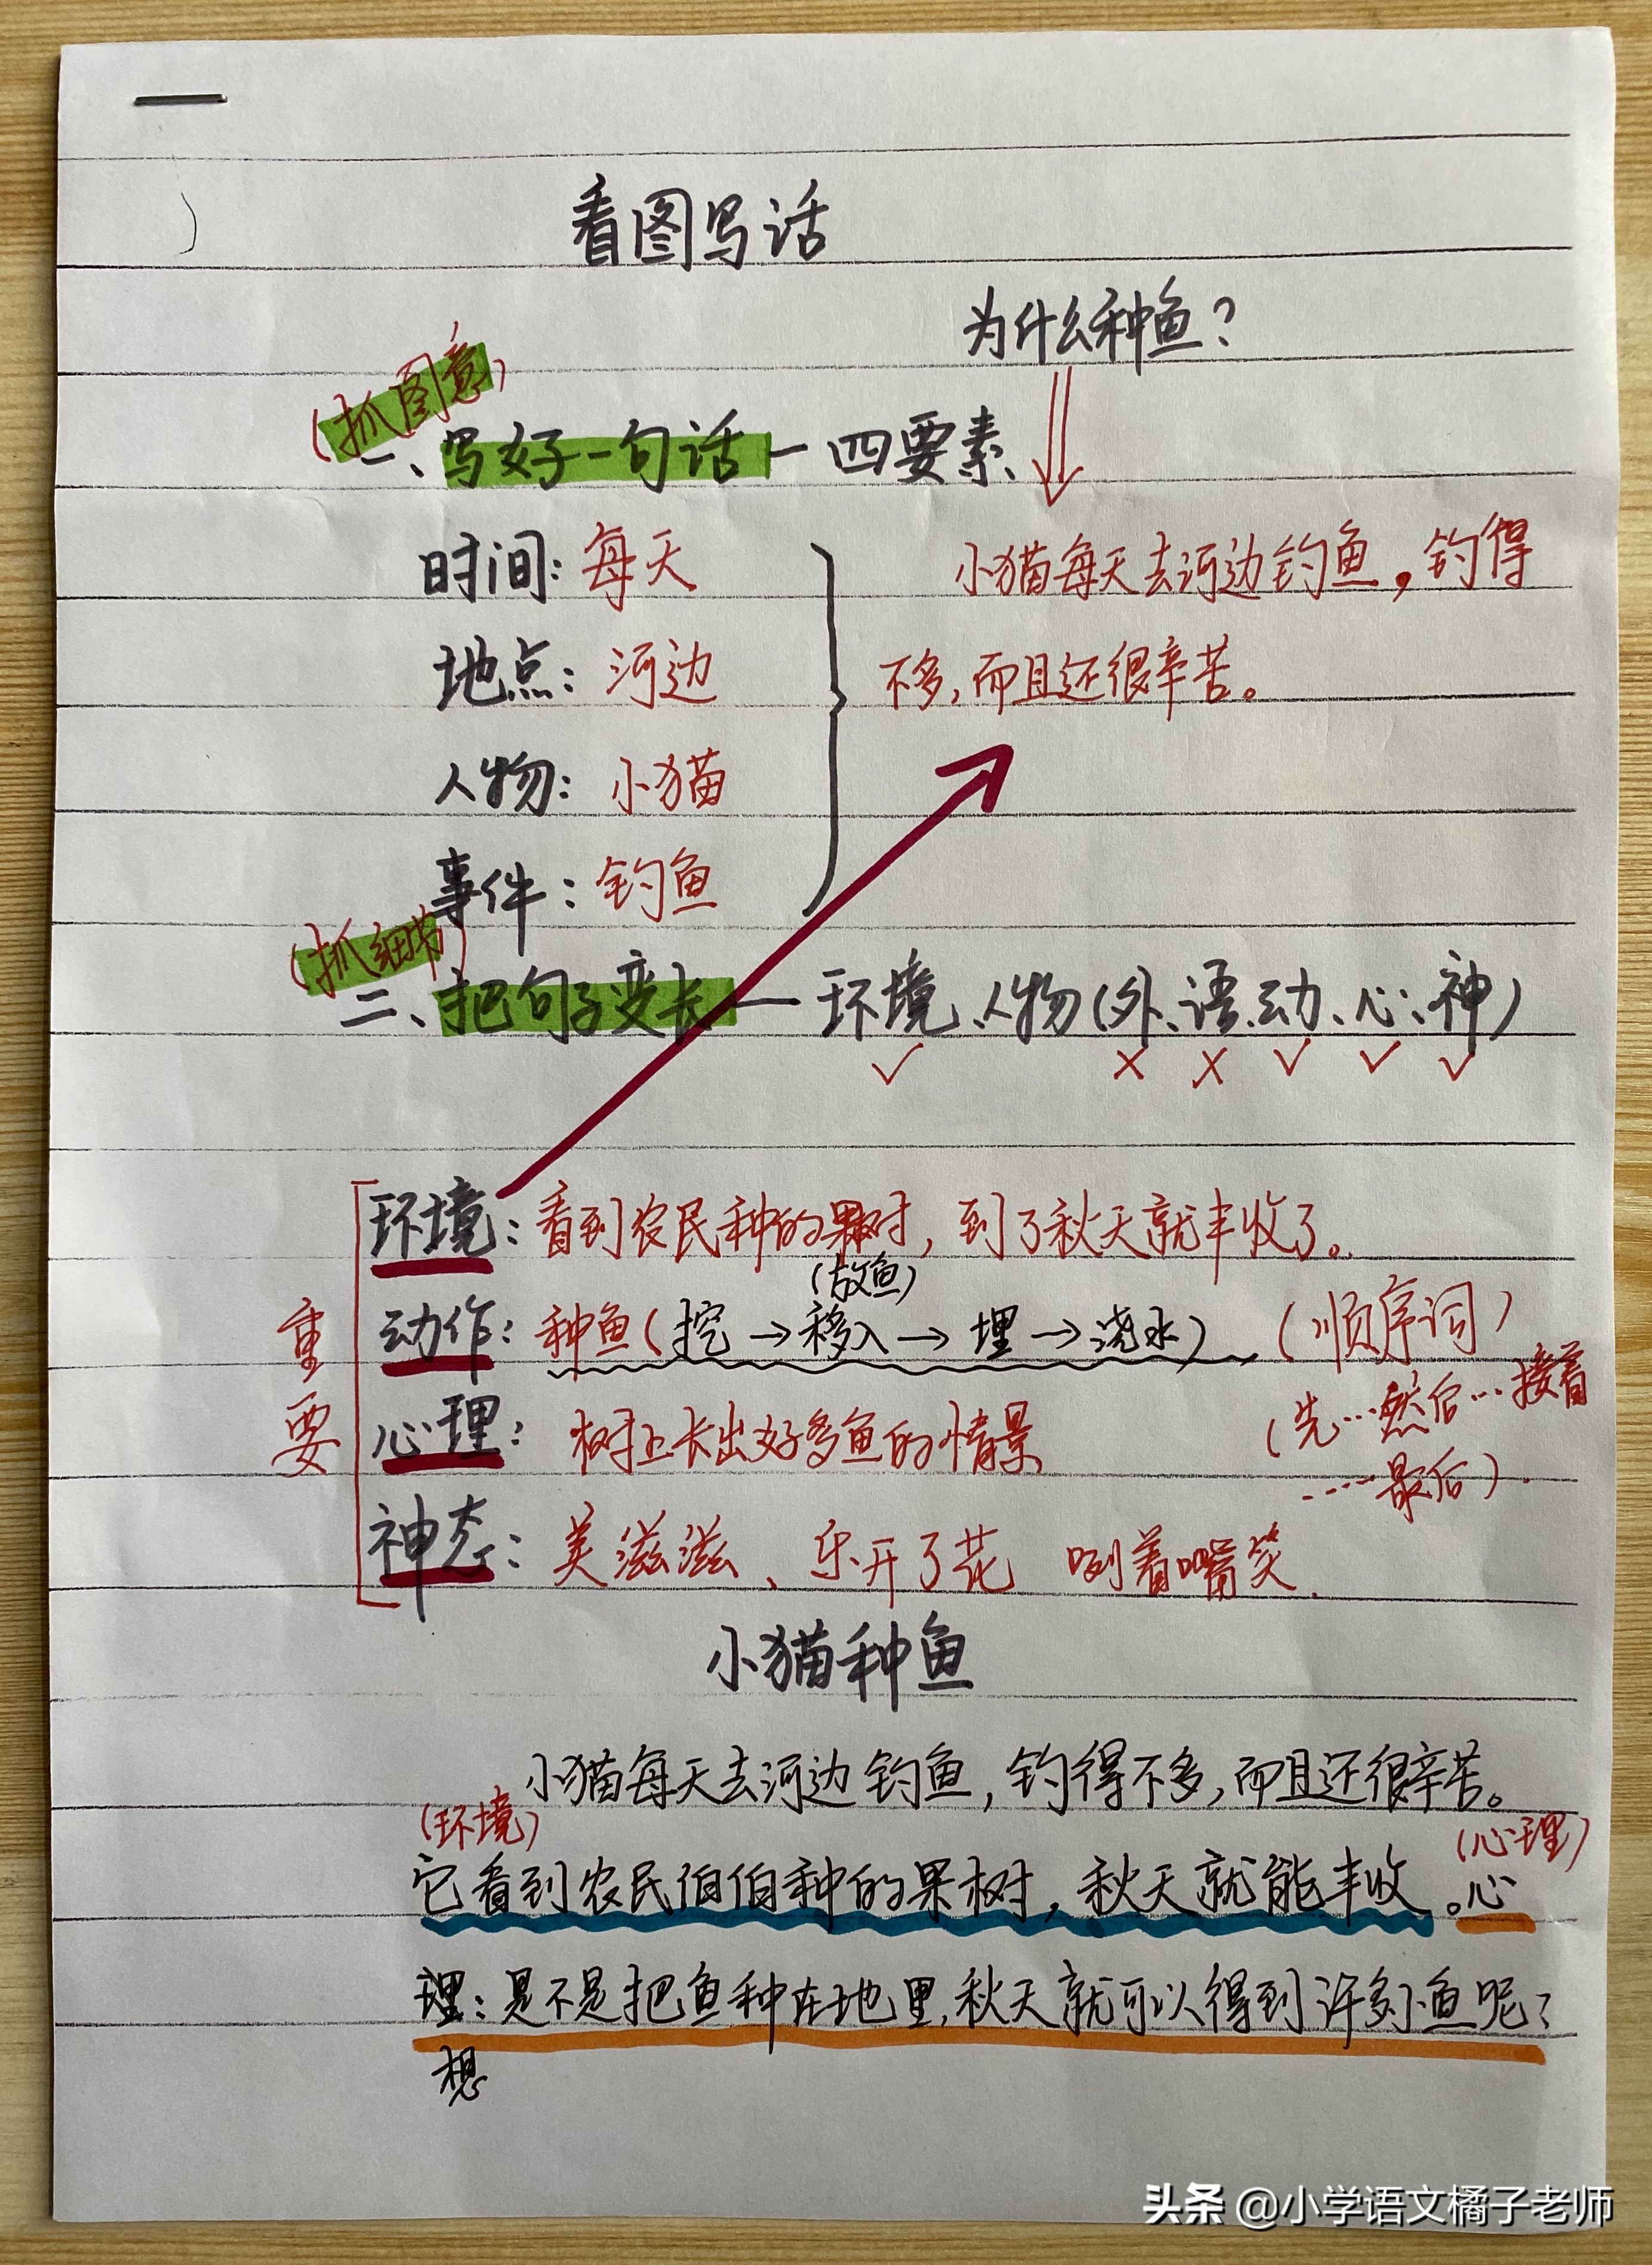 看图写话
为什么种鱼?
(抓图意)
一、写好一句话—四要素
时间:每天
地点:河边
人物:小猫
事件:钓鱼
小猫每天去河边钓鱼,钓得
不多,而且还很辛苦。
(抓细节)
二、把句子变长—环境、人物(外、语、动、心、神)
✓ × × ✓ ✓ ✓
重要
环境:看到农民种的果树,到了秋天就丰收了。
(放鱼)
动作:种鱼(挖→移入→埋→浇水)(顺序词)
(先…然后…接着
……最后).
心理:树上长出好多鱼的情景
神态:美滋滋、乐开了花 咧着嘴笑.
小猫种鱼
小猫每天去河边钓鱼,钓得不多,而且还很辛苦。
(环境)
(心理)
它看到农民伯伯种的果树,秋天就能丰收。心
理:是不是把鱼种在地里,秋天就可以得到许多小鱼呢?
想
头条 @小学语文橘子老师